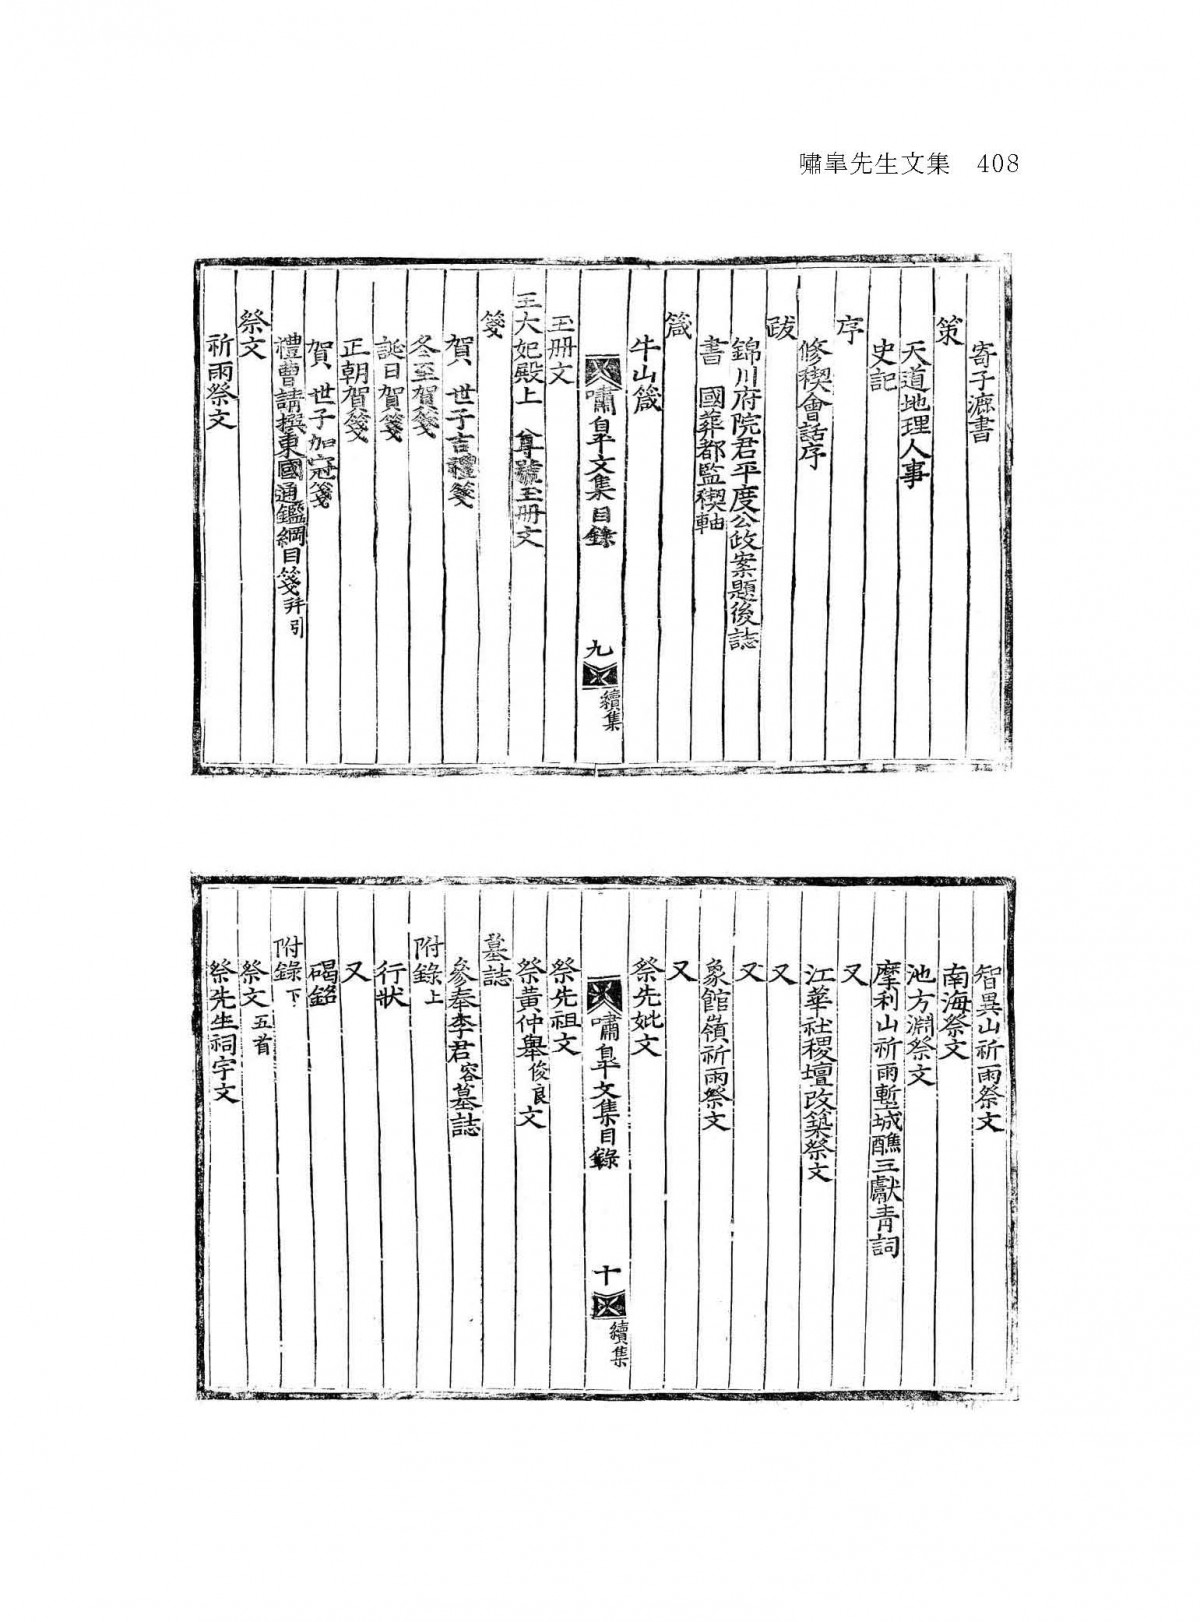 嘯皐先生文集 408
寄子漉書
策
天道地理人事
史記
序
修稧會話序
跋
錦川府院君平度公政案題後誌
書 國葬都監稧軸
箴
牛山箴
嘯皐文集目錄 九 續集
玉册文
王大妃殿上 尊號玉册文
箋
賀 世子吉禮箋
冬至賀箋
誕日賀箋
正朝賀箋
賀 世子加冠箋
禮曹請撰東國通鑑綱目箋幷引
祭文
祈雨祭文
智異山祈雨祭文
南海祭文
池方淵祭文
摩利山祈雨塹城醮三獻青詞
又
江華社稷壇改築祭文
又
又
象館嶺祈雨祭文
又
祭先妣文
嘯皐文集目錄 十 續集
祭先祖文
祭黃仲舉俊良文
墓誌
參奉李君容墓誌
附錄上
行狀
又
碣銘
附錄下
祭文五首
祭先生祠宇文